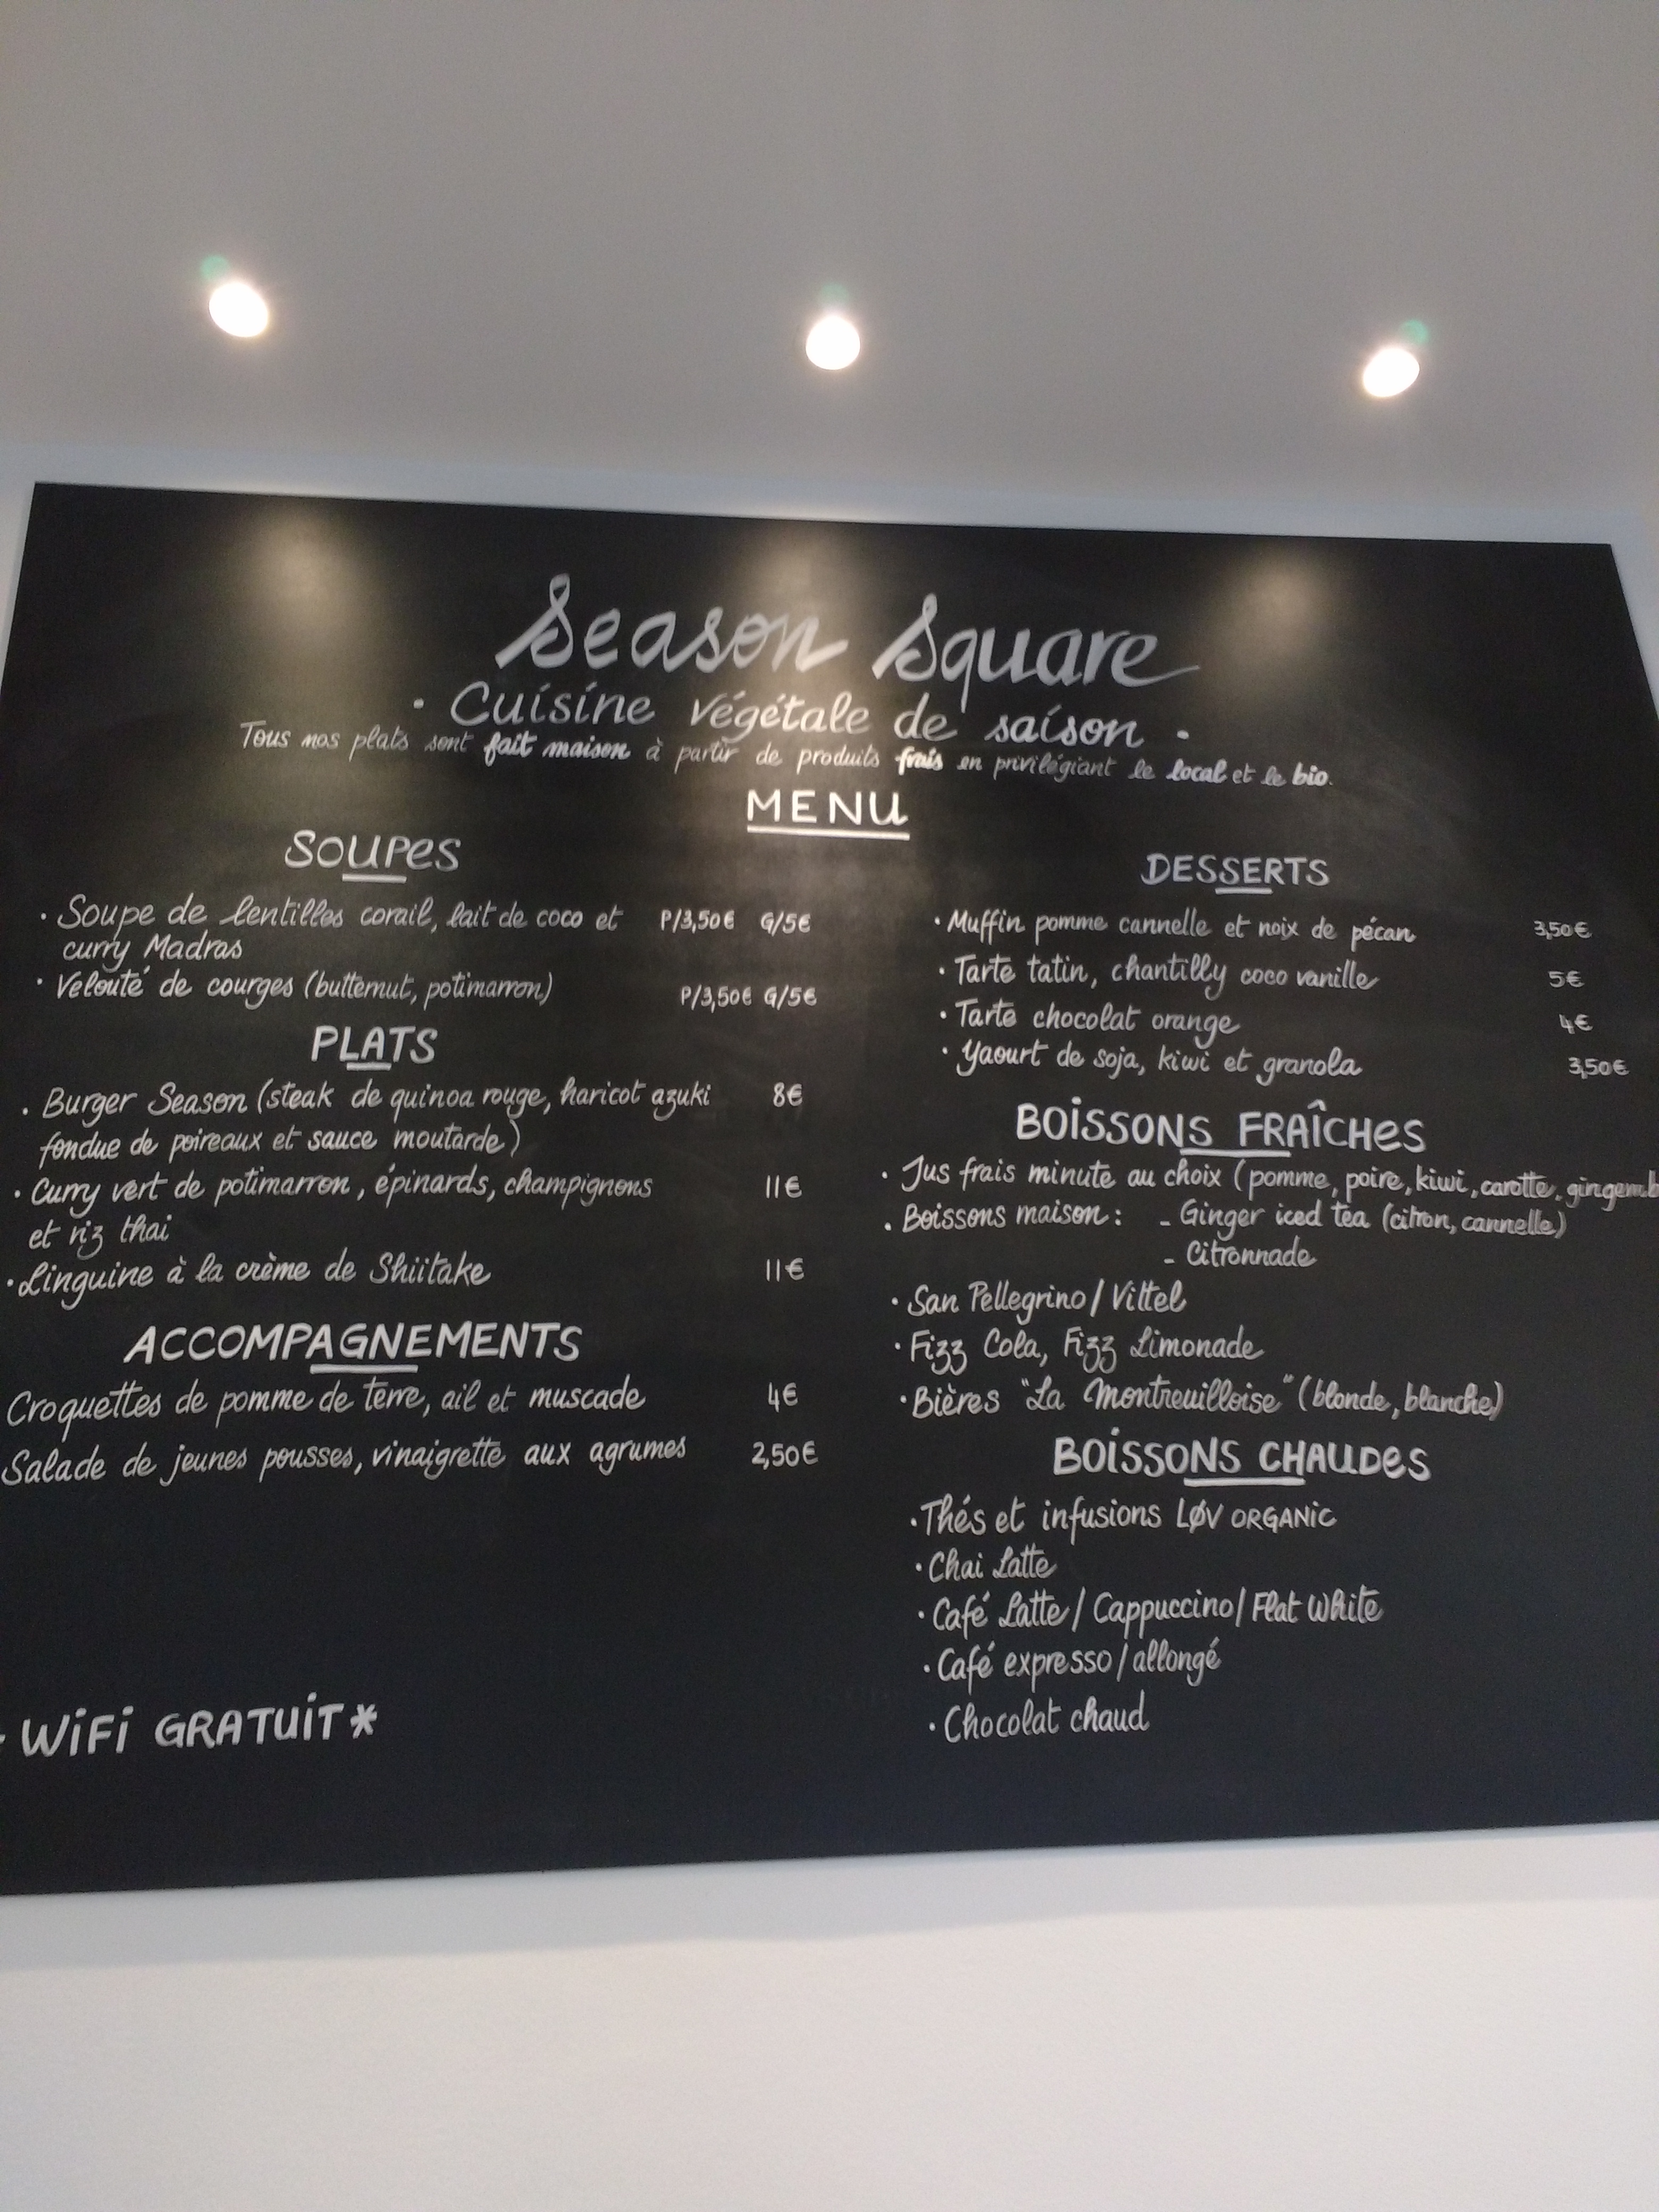 Season Square
· Cuisine végétale de saison ·
Tous nos plats sont fait maison à partir de produits frais en privilégiant le local et le bio.
MENU
SOUPES
· Soupe de lentilles corail, lait de coco et P/3,50€ G/5€
curry Madras
· Velouté de courges (butternut, potimarron) P/3,50€ G/5€
PLATS
· Burger Season (steak de quinoa rouge, haricot azuki 8€
fondue de poireaux et sauce moutarde)
· Curry vert de potimarron, épinards, champignons 11€
et riz thai
· Linguine à la crème de Shiitake 11€
ACCOMPAGNEMENTS
Croquettes de pomme de terre, ail et muscade 4€
Salade de jeunes pousses, vinaigrette aux agrumes 2,50€
WiFi GRATUIT*
DESSERTS
· Muffin pomme cannelle et noix de pécan 3,50€
· Tarte tatin, chantilly coco vanille 5€
· Tarte chocolat orange 4€
· Yaourt de soja, kiwi et granola 3,50€
BOISSONS FRAÎCHES
· Jus frais minute au choix (pomme, poire, kiwi, carotte, gingemb
· Boissons maison : - Ginger iced tea (citron, cannelle)
- Citronnade
· San Pellegrino / Vittel
· Fizz Cola, Fizz Limonade
· Bières "La Montreuilloise" (blonde, blanche)
BOISSONS CHAUDES
· Thés et infusions LØV ORGANIC
· Chai Latte
· Café Latte / Cappuccino / Flat White
· Café expresso / allongé
· Chocolat chaud